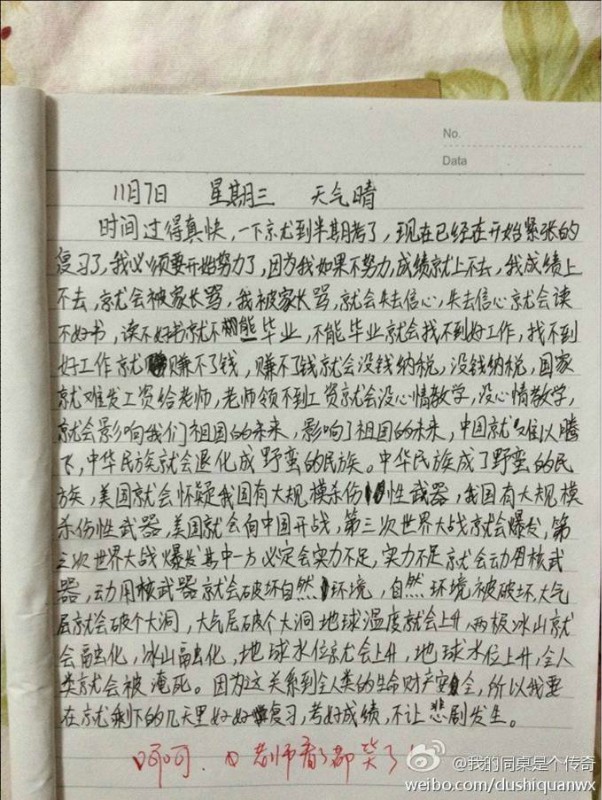 No.
Data
11月7日 星期三 天气晴
时间过得真快,一下就到半期考了,现在已经在开始紧张的
复习了,我必须要开始努力了,因为我如果不努力,成绩就上不去,我成绩上
不去,就会被家长骂,我被家长骂,就会失去信心,失去信心就会读
不好书,读不好书就不能毕业,不能毕业就会找不到好工作,找不到
好工作就赚不了钱,赚不了钱就会没钱纳税,没钱纳税,国家
就难发工资给老师,老师领不到工资就会没心情教学,没心情教学,
就会影响我们祖国的未来,影响了祖国的未来,中国就难以腾
飞,中华民族就会退化成野蛮的民族。中华民族成了野蛮的民
族,美国就会怀疑我国有大规模杀伤性武器,我国有大规模
杀伤性武器,美国就会向中国开战,第三次世界大战就会爆发,第
三次世界大战爆发其中一方必定会实力不足,实力不足就会动用核武
器,动用核武器就会破坏自然环境,自然环境被破坏,大气
层就会破个大洞,大气层破个大洞地球温度就会上升,两极冰山就
会融化,冰山融化,地球水位就会上升,地球水位上升,全人
类就会被淹死。因为这关系到全人类的生命财产安全,所以我要
在就剩下的几天里好好复习,考好成绩,不让悲剧发生。
呵呵. 老师看了都笑了!
@我的同桌是个传奇
weibo.com/dushiquanwx